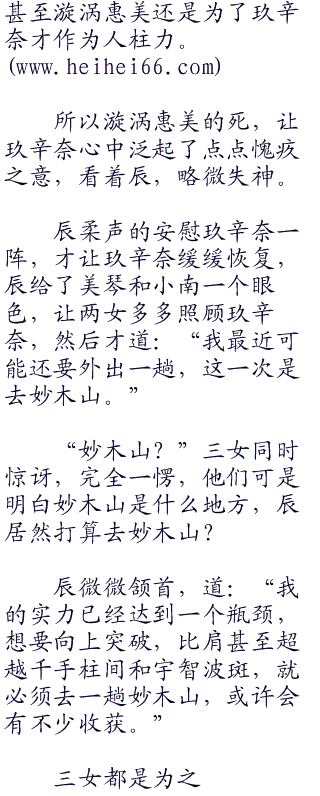 甚至漩涡惠美还是为了玖辛
奈才作为人柱力。
(www.heihei66.com)
所以漩涡惠美的死，让
玖辛奈心中泛起了点点愧疚
之意，看着辰，略微失神。
辰柔声的安慰玖辛奈一
阵，才让玖辛奈缓缓恢复，
辰给了美琴和小南一个眼
色，让两女多多照顾玖辛
奈，然后才道：“我最近可
能还要外出一趟，这一次是
去妙木山。”
“妙木山？”三女同时
惊讶，完全一愣，他们可是
明白妙木山是什么地方，辰
居然打算去妙木山？
辰微微颔首，道：“我
的实力已经达到一个瓶颈，
想要向上突破，比肩甚至超
越千手柱间和宇智波斑，就
必须去一趟妙木山，或许会
有不少收获。”
三女都是为之